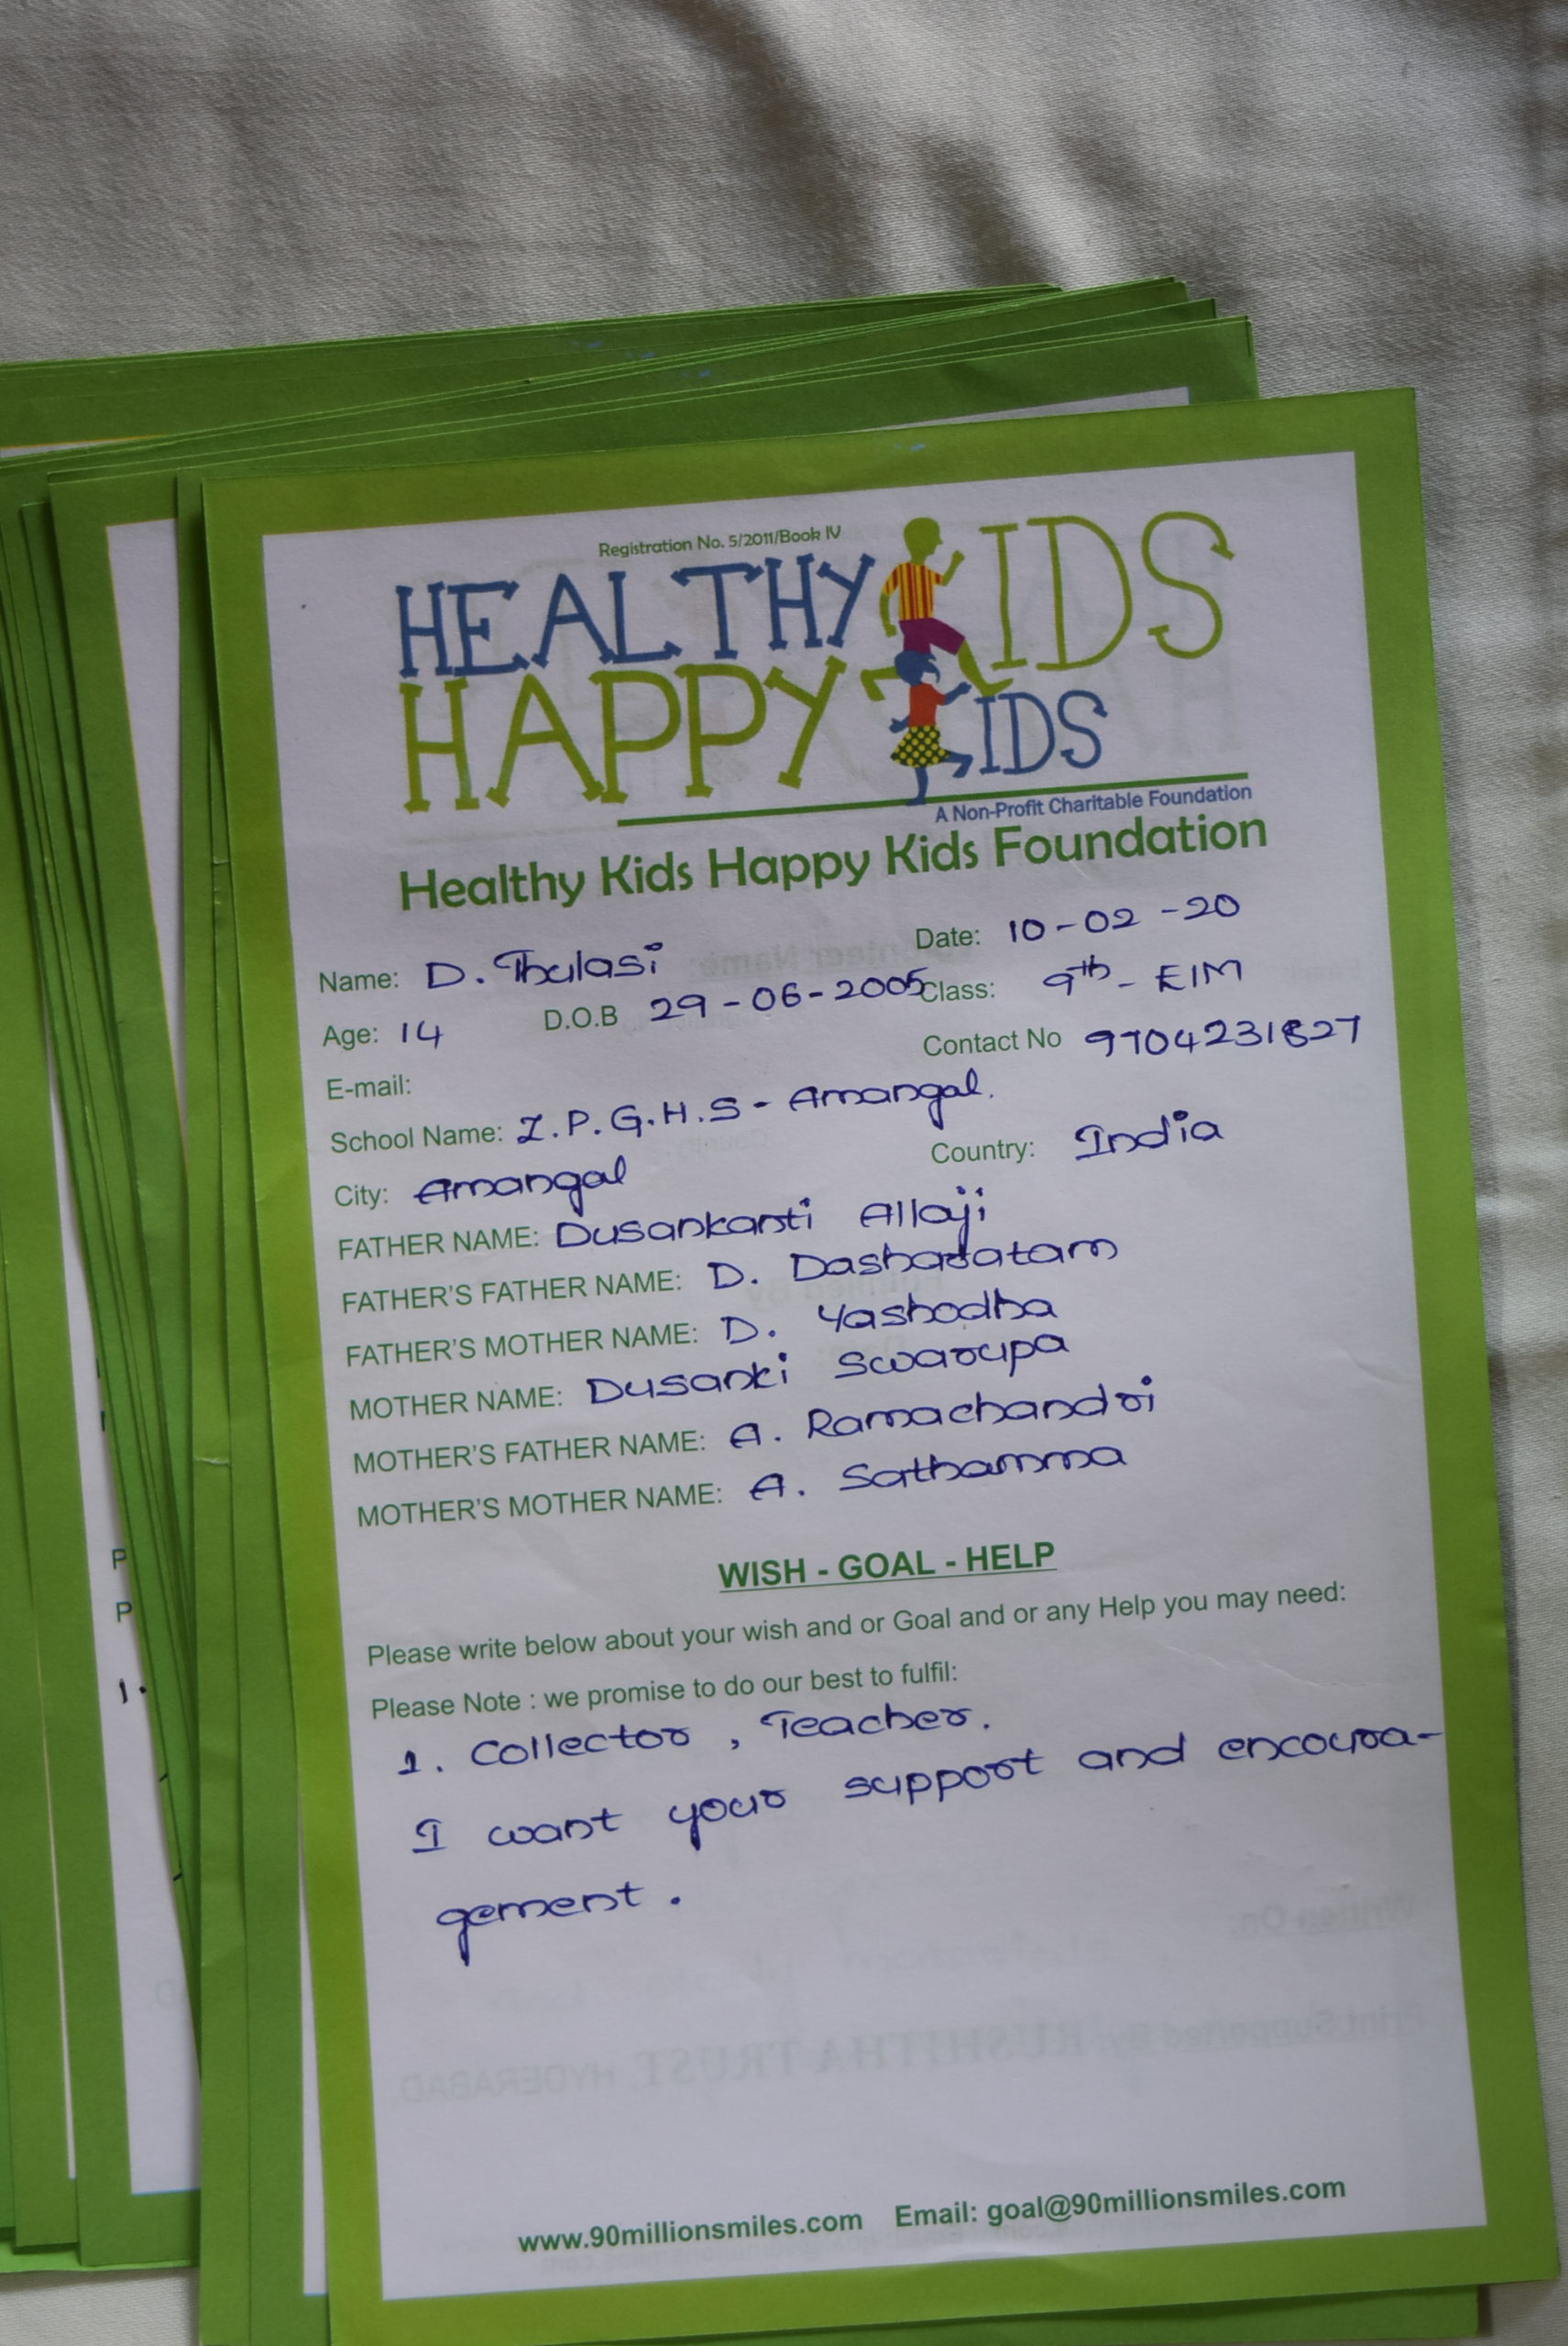 Registration No. 5/2011/Book IV
HEALTHY KIDS
HAPPY KIDS
A Non-Profit Charitable Foundation
Healthy Kids Happy Kids Foundation
Name: D. Thulasi Date: 10-02-20
Age: 14 D.O.B 29-06-2005 Class: 9th - E/M
E-mail: Contact No 9704231827
School Name: Z.P.G.H.S - Amangal.
City: Amangal Country: India
FATHER NAME: Dusankanti Allaji
FATHER'S FATHER NAME: D. Dasharatam
FATHER'S MOTHER NAME: D. Yashodha
MOTHER NAME: Dusanki Swarupa
MOTHER'S FATHER NAME: A. Ramachandri
MOTHER'S MOTHER NAME: A. Sathamma
WISH - GOAL - HELP
Please write below about your wish and or Goal and or any Help you may need:
Please Note : we promise to do our best to fulfil:
1. Collector , Teacher.
I want your support and encoura-
gement.
www.90millionsmiles.com Email: goal@90millionsmiles.com